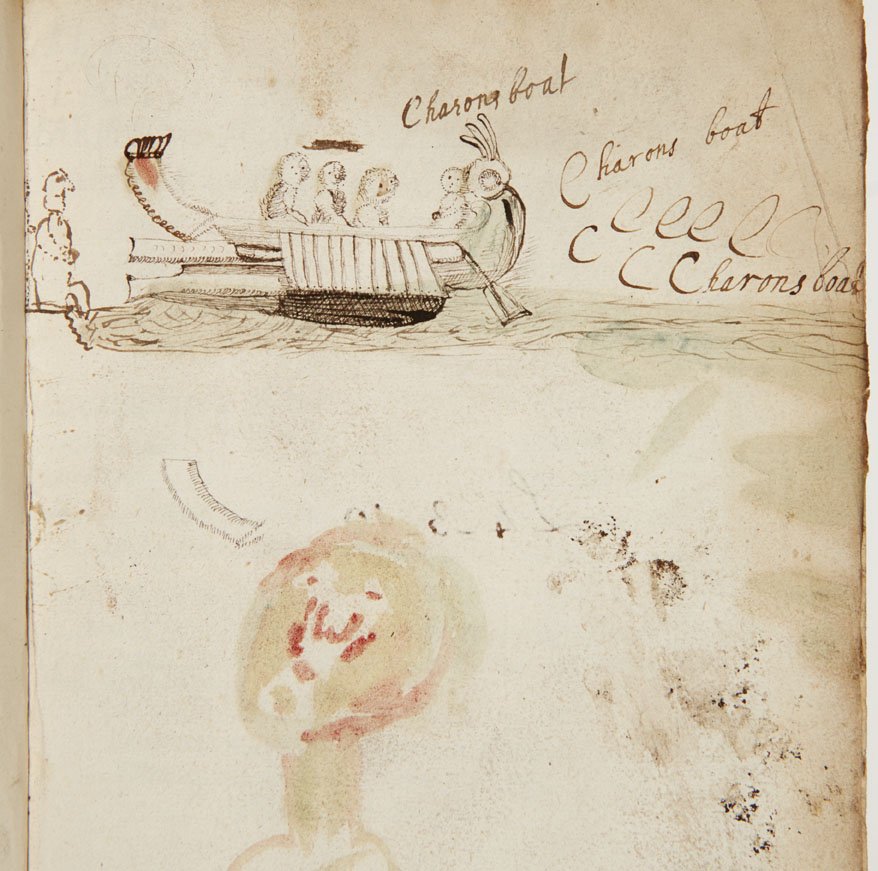 Charons boat
Charons boat
C
C Charons boat